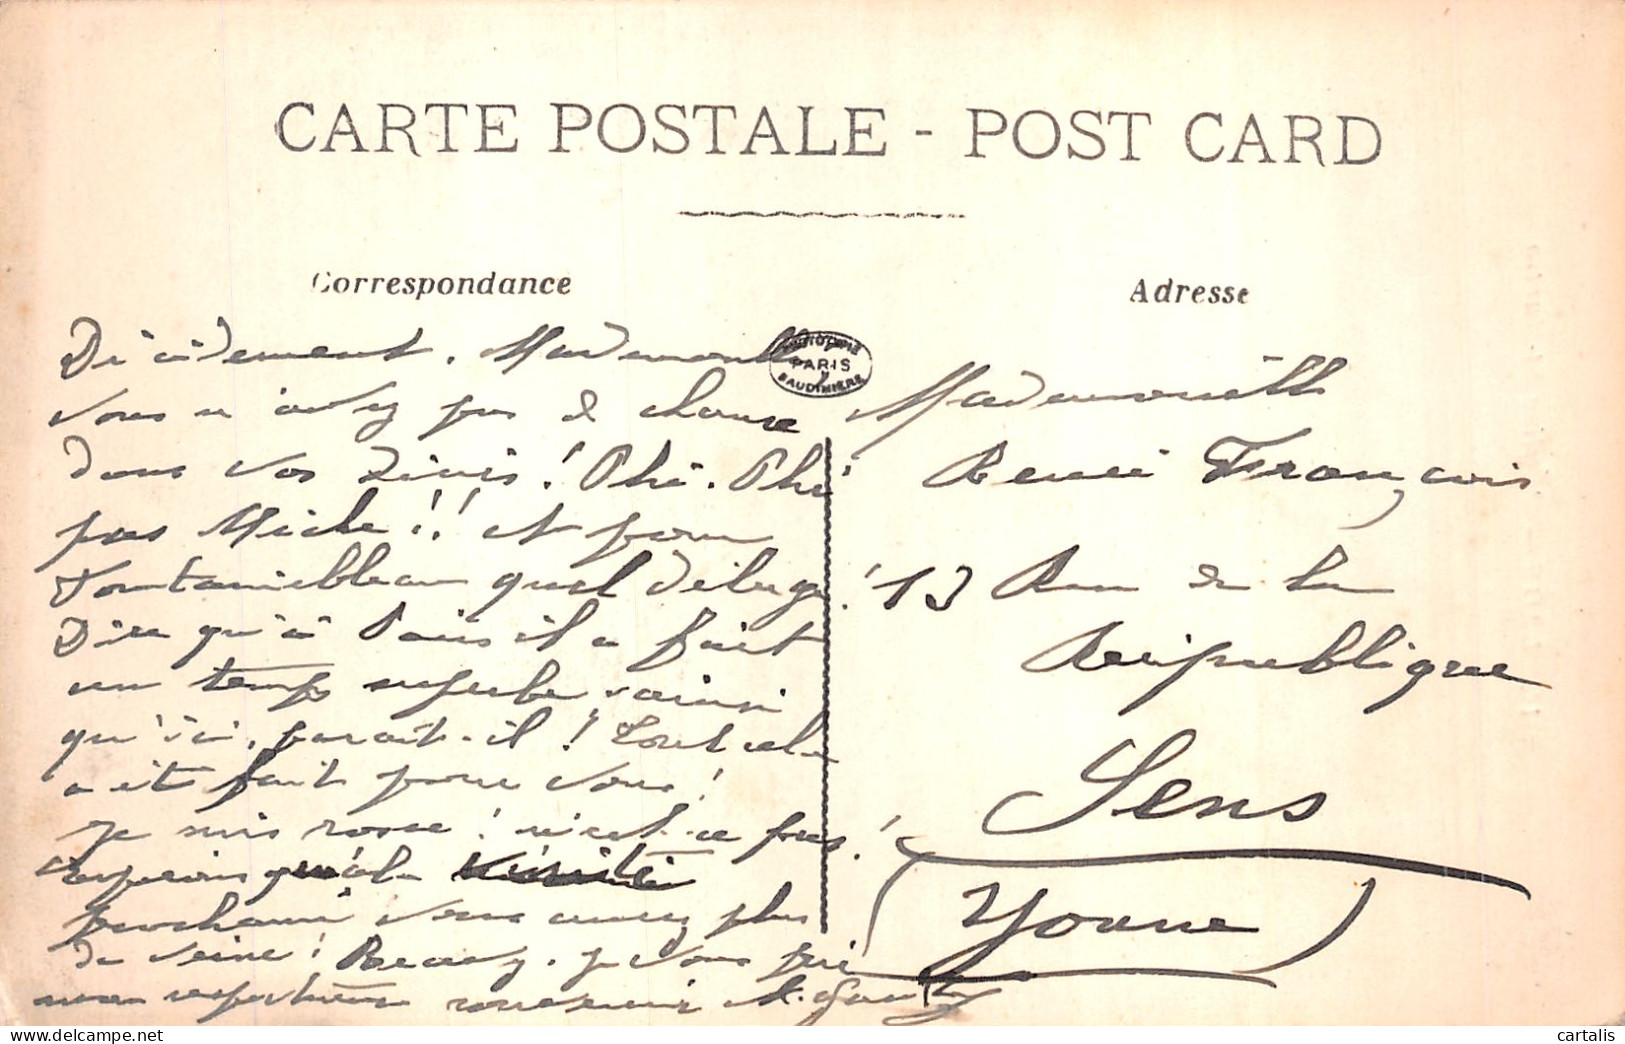 CARTE POSTALE - POST CARD
Correspondance
Adresse
PARIS
BAUDINIERE
Décidement, Mademoiselle
vous n'avez pas de chance
dans vos
pas Miche !! et pour
Fontainebleau quel déluge !
Dire qu'à Paris il a fait
un temps superbe, ainsi
qu'ici, parait-il ! Tout cela
a été fait pour vous !
Je suis rosse ! n'est-ce pas !
Espérons qu'à la visite
prochaine vous aurez plus
de veine ! Recevez, je vous prie
mon respectueux souvenir
Mademoiselle
Renée François
13 Rue de la
République
Sens
(Yonne)
cartalis